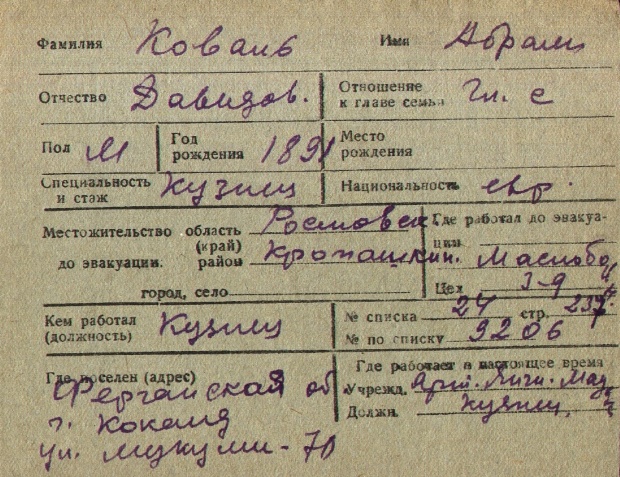 Фамилия Коваль Имя Абрам
Отчество Давидов. Отношение к главе семьи Гл. с
Пол М Год рождения 1891 Место рождения
Специальность и стаж Кузнец Национальность евр.
Местожительство область Ростовск. Где работал до эвакуа-
(край) ции
до эвакуации. район Кропоткин. Маслобой
город, село Цех З-д
Кем работал (должность) Кузнец № списка 24 стр. 237
№ по списку 9206
Где поселен (адрес) Где работает в настоящее время
Ферганская об Учрежд. Арт.
г. Коканд Должн. кузнец
ул. Мукуми-70